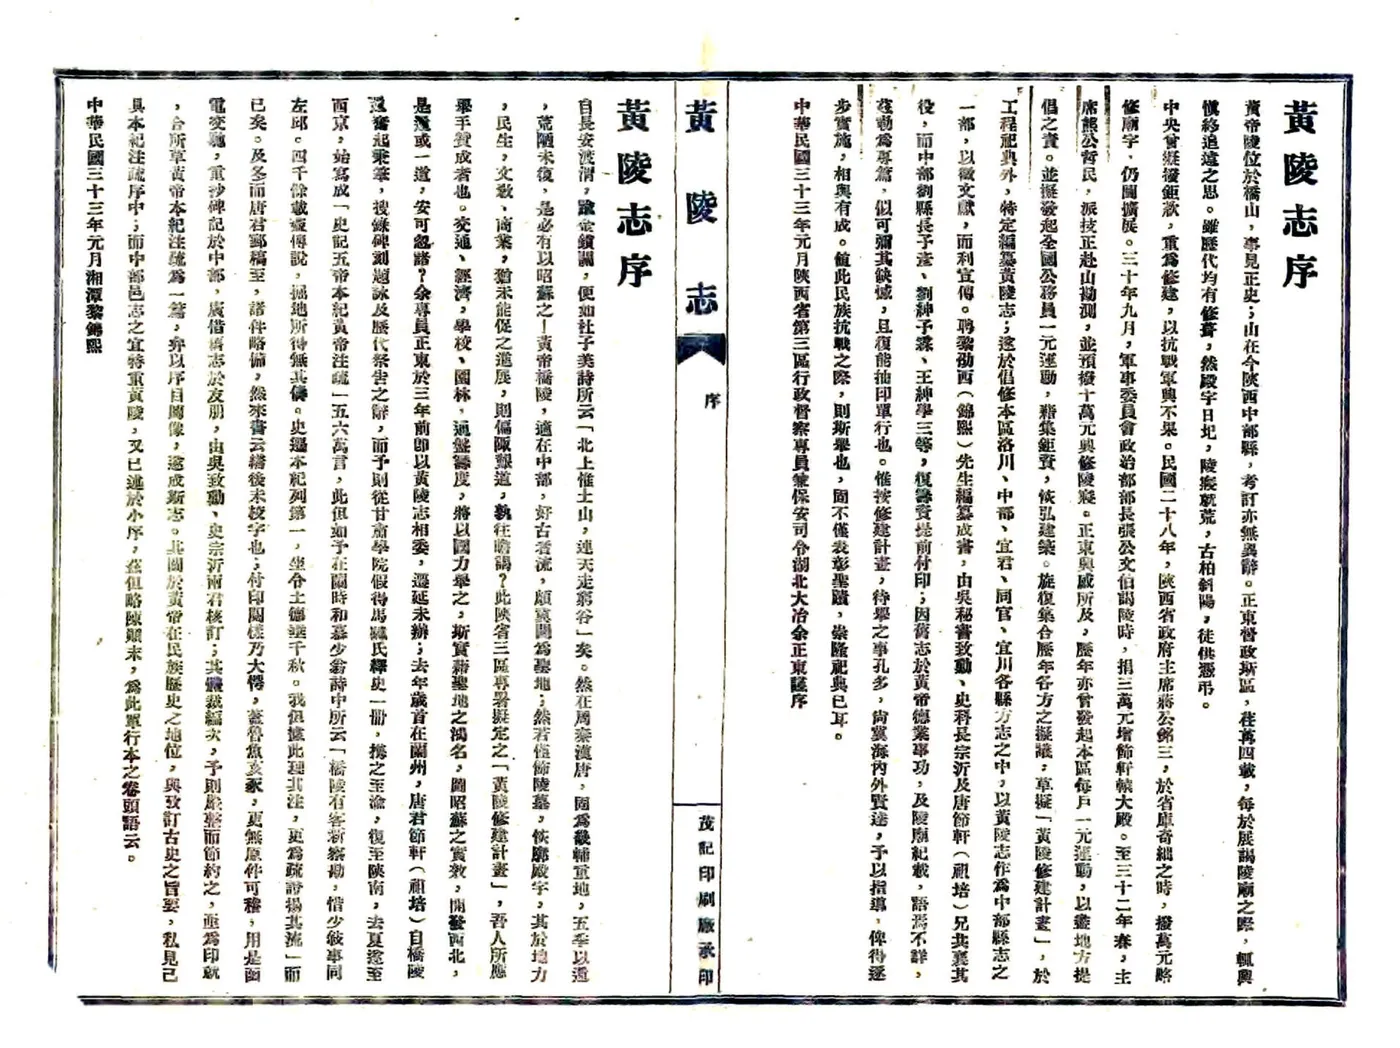 黃陵志序
黃帝陵位於橋山，事見正史；山在今陝西中部縣，考訂亦無異辭。正東督政斯區，荏苒四載，每於展謁陵廟之際，輒興
慎終追遠之思。雖歷代均有修葺，然殿宇日圮，陵寢就荒，古柏斜陽，徒供憑弔。
中央曾擬撥鉅欵，重為修建，以抗戰軍興不果。民國二十八年，陝西省政府主席蔣公銘三，於省庫奇絀之時，撥萬元略
修廟宇，仍闢擴展。三十年九月，軍事委員會政治部部長張公文伯謁陵時，捐三萬元增飾軒轅大殿。至三十二年春，主
席熊公哲民，派技正赴山勘測，並預撥十萬元興修陵寢。正東興感所及，歷年亦曾發起本區每戶一元運動，以盡地方提
倡之責。並擬發起全國公務員一元運動，藉集鉅資，恢弘建築。旋復集合歷年各方之擬議，草擬「黃陵修建計畫」，於
工程祀典外，特定編纂黃陵志；遂於倡修本區洛川、中部、宜君、同官、宜川各縣方志之中，以黃陵志作為中部縣志之
一部，以徵文獻，而利宣傳。聘黎劭西（錦熙）先生編纂成書，由吳秘書致勳、史科長宗沂及唐節軒（祖培）兄共襄其
役，而中部劉縣長予彥、劉紳予霖、王紳學三等，復籌資提前付印；因舊志於黃帝德業事功，及陵廟紀載，語焉不詳，
茲勒為專篇，似可彌其缺憾，且復能抽印單行也。惟按修建計畫，待舉之事孔多，尚冀海內外賢達，予以指導，俾得逐
步實施，相與有成。值此民族抗戰之際，則斯舉也，固不僅表彰聖蹟，崇隆祀典已耳。
中華民國三十三年元月陝西省第三區行政督察專員兼保安司令湖北大冶余正東謹序
黃陵志
序
茂記印刷廠承印
黃陵志序
自長安渡渭，踰金鎖關，便如杜子美詩所云「北上惟土山，連天走窮谷」矣。然在周秦漢唐，固為畿輔重地，五季以還
，荒陋未復，是必有以昭蘇之—黃帝橋陵，適在中部，好古者流，願冀闢為聖地；然若僅飾陵墓，恢廓殿宇，其於地力
，民生，文教，商業，猶未能促之進展，則偏陬艱道，孰往瞻謁？此陝省三區專署擬定之「黃陵修建計畫」，吾人所應
舉手贊成者也。交通、經濟，學校、園林，通盤籌度，將以國力舉之，斯實藉聖地之鴻名，圖昭蘇之實效，開發西北，
是遵或一道，安可忽諸？余專員正東於三年前卽以黃陵志相委，遷延未辦；去年歲首在蘭州，唐君節軒（祖培）自橋陵
奮起秉筆，搜錄碑刻題詠及歷代祭告之辭，而予則從甘肅學院假得馬驌氏釋史一冊，攜之至渝，復至陝南，去夏遂至
西京，始寫成「史記五帝本紀黃帝注疏」五六萬言，此但如予在蘭時和慕少翁詩中所云「橋陵有客新察勘，惜少敍事同
左邱。四千餘載壹傳說，掘地所得無其儔。史遷本紀列第一，坐令土德延千秋。我但據此理其注，更為疏證揚其流」而
已矣。及冬而唐君郵稿至，諸件略備，然來書云繕後未校字也；付印閱樣乃大愕，蓋魯魚亥豕，更無原件可稽，用是函
電交馳，重抄碑記於中部，廣借舊志於友朋，由吳致勳、史宗沂兩君核訂；其體裁編次，予則嚴整而節約之，亟為印就
，合所草黃帝本紀注疏為一篇；弁以序目圖像，遂成斯志。其關於黃帝在民族歷史之地位，與攷訂古史之旨要，私見已
具本紀注疏序中；而中部邑志之宜特重黃陵，又已述於小序，茲但略陳顛末，為此單行本之卷頭語云。
中華民國三十三年元月湘潭黎錦熙